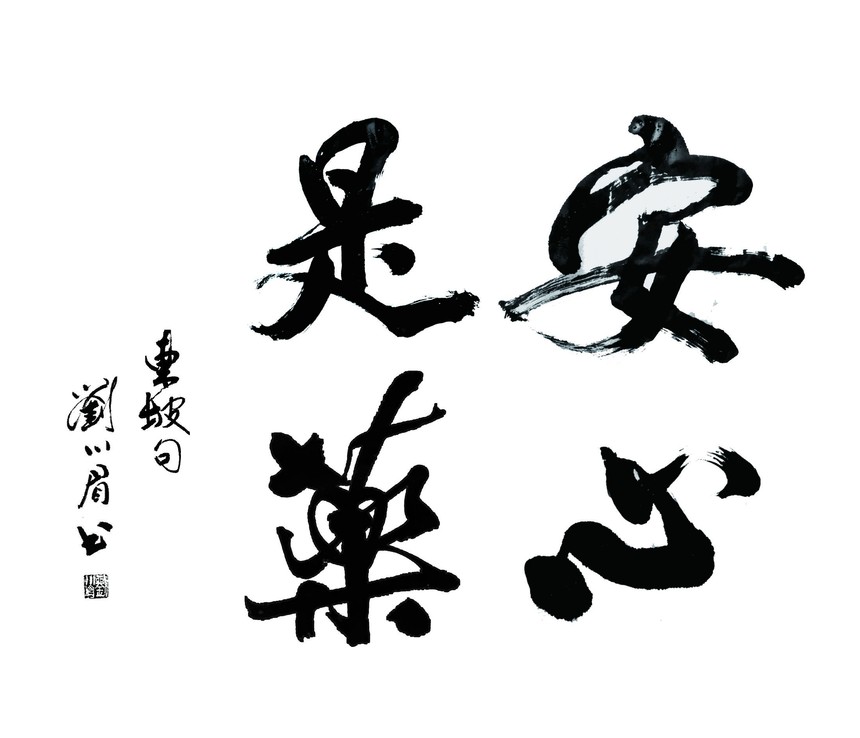 安心
是藥
東坡句
劉川眉书